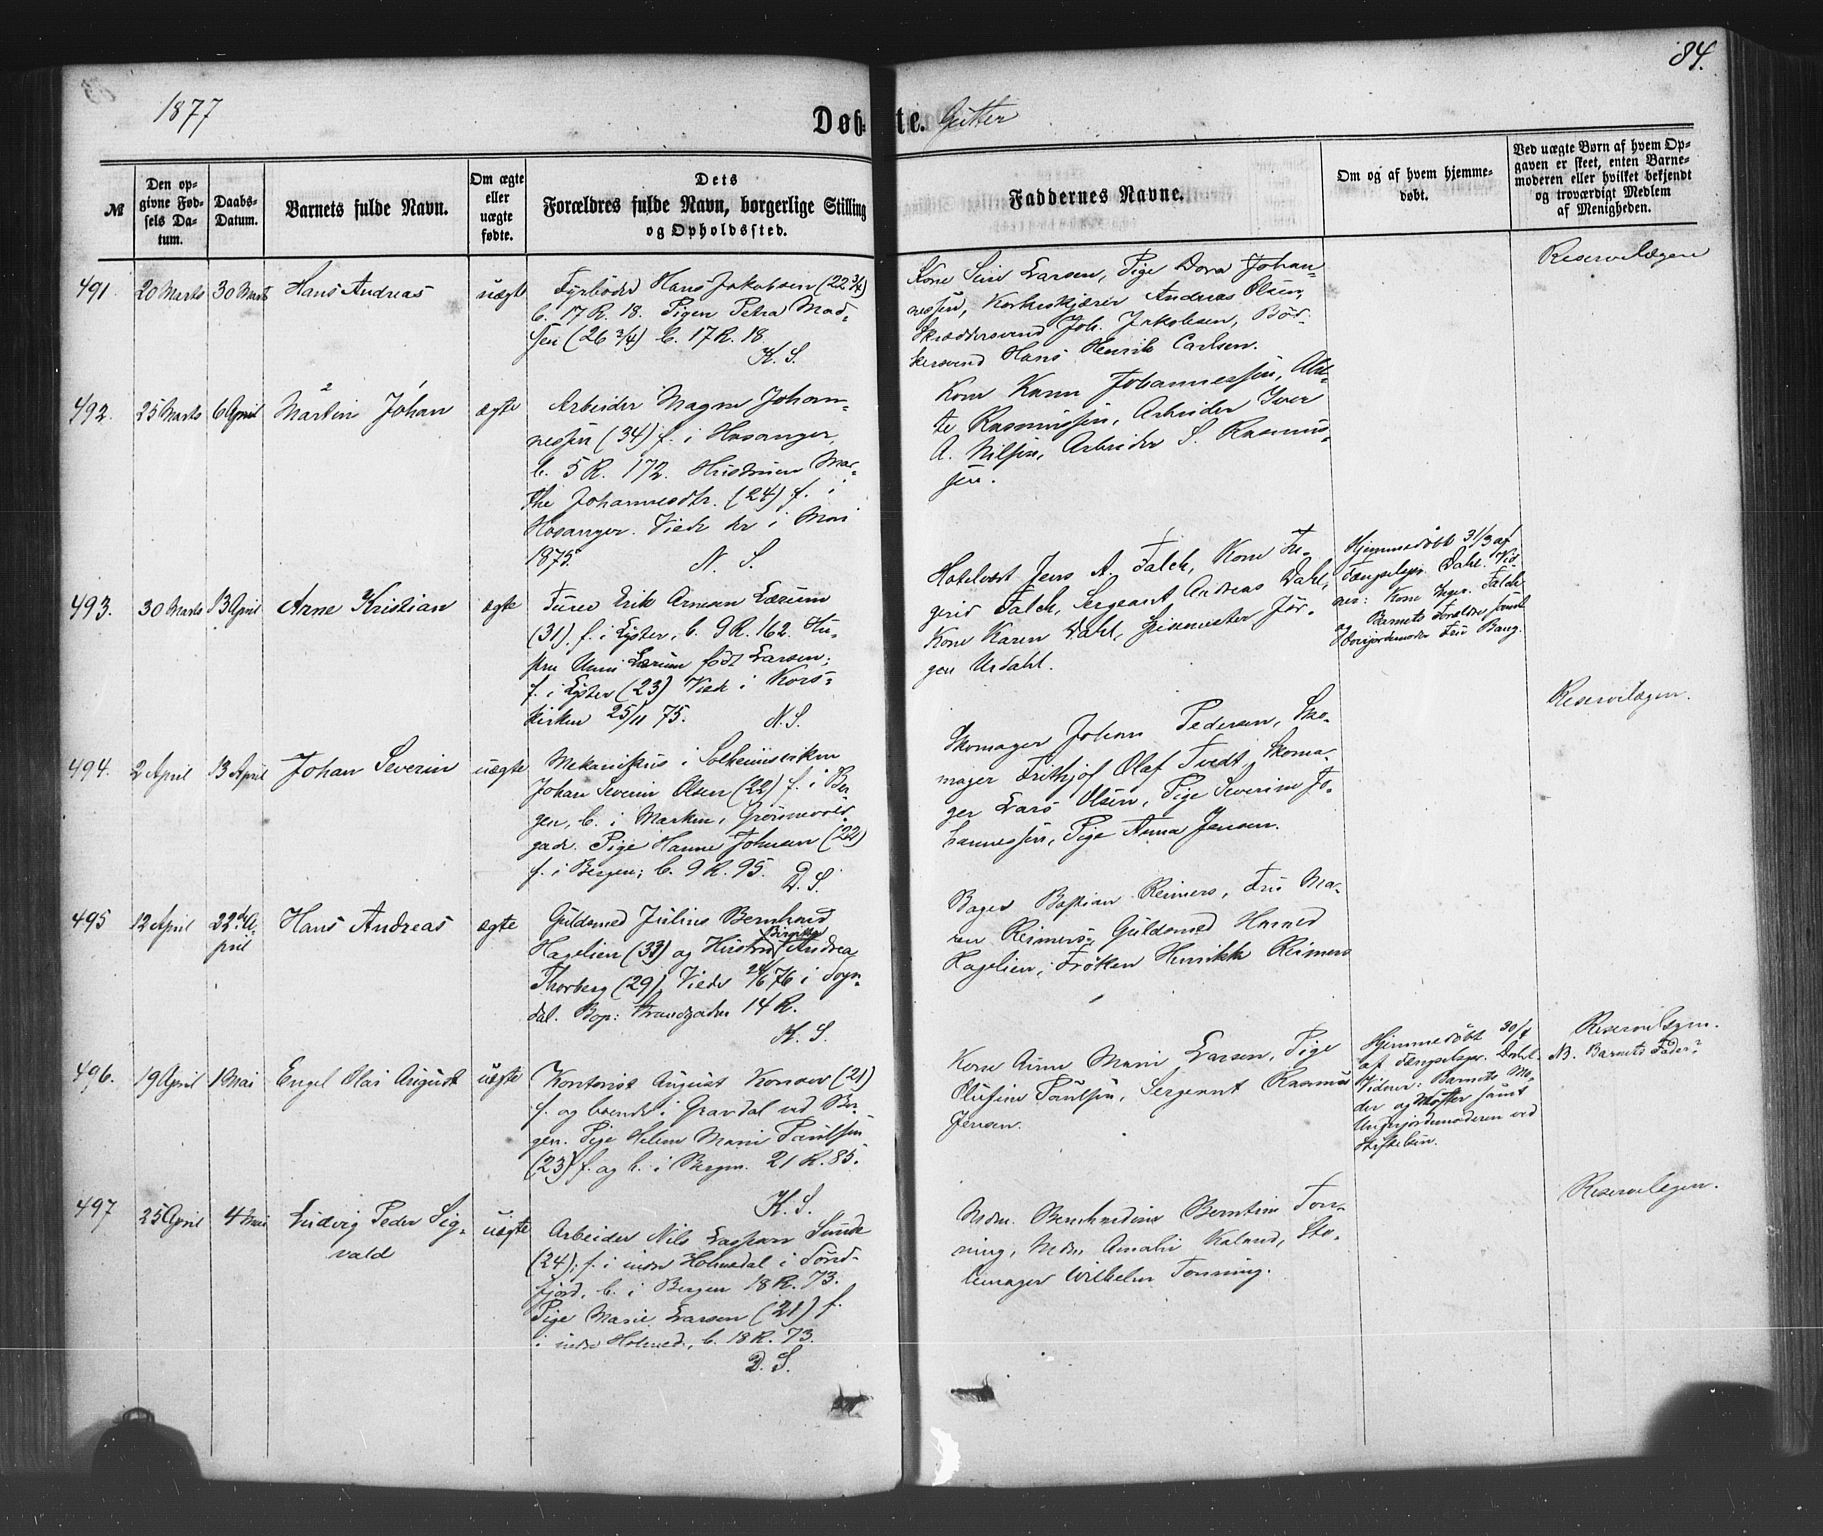 84.
1877
Døb- te. Gutter
№
Den op-
givne Fød-
sels Da-
tum.
Daabs-
Datum.
Barnets fulde Navn.
Om ægte
eller
uægte
fødte.
Dets
Forældres fulde Navn, borgerlige Stilling
og Opholdssted.
Faddernes Navne.
Om og af hvem hjemme-
døbt.
Ved uægte Børn af hvem Op-
gaven er skeet, enten Barne-
moderen eller hvilket bekjendt
og troværdigt Medlem
af Menigheden.
491. 20 Marts 30 Marts Hans Andreas uægte
Fyrbøder Hans Jakobsen (22 3/4)
b. 17 R. 18. Pigen Petra Mad-
sen (26 3/4) b. 17 R. 18
K. S.
Kone Sein Larsen, Pige Dora Johan-
nessen, Korkeskjærer Andreas Olsen,
Skræddersvend Joh. Jakobsen, Bød-
kersvend Hans Henrik Carlsen.
Reservelægen
492. 25 Marts 6 April Martin Johan ægte
2 1
Arbeider Magne Johan-
nessen (34) f. i Hosanger,
b. 5 R. 172. Hustruen Mar-
the Johannesdtr. (24) f. i
Hosanger. Viede der i Mai
1875. N. S.
Kone Karen Johannessen,
Rasmussen, Arbeider Iver
A. Nilsen, Arbeider S. Rasmus-
sen.
493. 30 Marts 13 April Arne Kristian ægte
Furer Erik Arnesen Lærum
(31), f. i Lyster, b. 9 R. 162. Hu-
stru Unni Lærum født Larsen;
f. i Lyster (23) Viede i Kors-
kirken 25/11 75. N. S.
Hotelvært Jens A. Falch, Kone In-
gerid Falch, Sergeant Andreas Dahl,
Kone Karen Dahl, Spisemester Jør-
gen Urdahl.
Hjemmedøbt 31/3 af
Fængselspr. Dahl. Vid-
ner: Kone Inger. Falch
og Barnets Forældre samt
Overjordemoder Fru Bang.
494. 2 April 13 April Johan Severin uægte
Mekanikus i Solheimsviken
Johan Severin Olsen (22) f. i Ber-
gen, b. i Marken, Grønnevolds
gade. Pige Hanne Johnsen (22)
f. i Bergen; b. 9 R. 95. D. S.
Skomager Johan Pedersen, Sko-
mager Frithjof Olaf Tvedt, Skoma-
ger Lars Olsen, Pige Severine Jo-
hannessen, Pige Anna Jensen.
Reservelægen.
495 12 April 22de A-
pril Hans Andreas ægte
Guldsmed Julius Bernhard
Hagelien (33) og Hustru Birgitte Andrea
Thorberg (29) Viede 24/6 76 i Sogn-
dal. Bop: Strandgaden 14 R.
K. S.
Bager Bastian Reimers, Fru Ma-
ren Reimers, Guldsmed
Hagelien, Frøken Henrikke Reimers
496. 19 April 1 Mai Engel Olai August uægte
Kontorist August Konow (21)
f. og boende i Gravdal ved Ber-
gen. Pige Helene Marie Paulsen
(23) f. og b. i Bergen. 21 R. 85.
K. S.
Kone Anne Marie Larsen, Pige
Olufine Paulsen, Sergeant Rasmus
Jensen.
Hjemmedøbt 30/4
af Fængselspr. Dahl.
Vidner: Barnets Mo-
der og Moster samt
Underjordemoderen ved
Stiftelsen.
Reservelægen.
NB. Barnets Fader?
497 25 April 4 Mai Ludvig Peder Sig-
vald uægte
Arbeider Nils Sunde
(24); f. i indre Holmedal i Sønd-
fjord, b. i Bergen 18 R. 73.
Pige Marie Larsen (21) f.
i indre Holmed., b. 18 R. 73.
D. S.
Mdm. Berntine Ton-
ning, Mdm Amalie Kaland, Sto-
lemager Wilhelm Tonning.
Reservelægen.